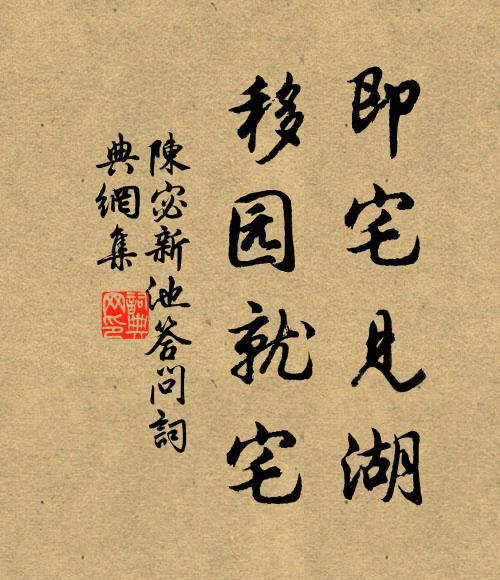 即宅见湖
移园就宅
陳宓新池答問詞
典網集
詞典
网印